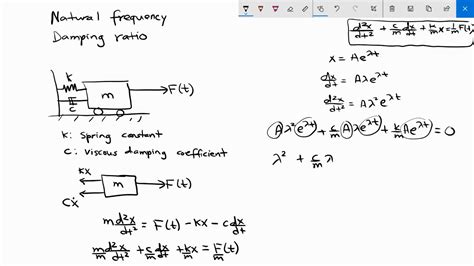 Natural frequency
Damping ratio
K
c
m
F(t)
K: Spring constant
C: viscous damping coefficient
Kx
Cẋ
m
F(t)
m d²x/dt² = F(t) - Kx - c dx/dt
m/m d²x/dt² + c/m dx/dt + k/m x = F(t)/m
d²x/dt² + c/m dx/dt + k/m x = 1/m F(t)
x = Ae^λt
dx/dt = Aλe^λt
d²x/dt² = Aλ²e^λt
Aλ²e^λt + c/m Aλe^λt + k/m Ae^λt = 0
λ² + c/m λ